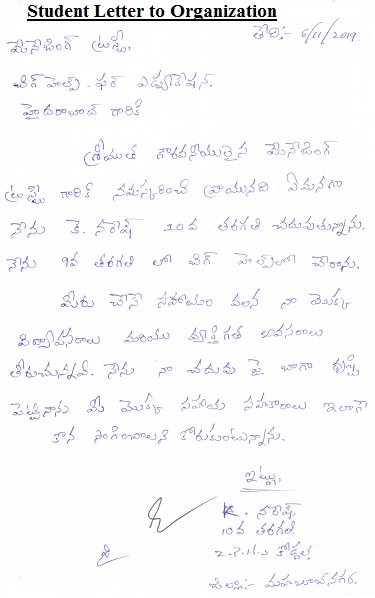 Student Letter to Organization
తేది:- 6/11/2019.
మేనేజింగ్ ట్రస్టీ,
బిగ్ హెల్ప్ ఫర్ ఎడ్యుకేషన్.
హైదరాబాద్ గారికి
శ్రీయుత గౌరవనీయులైన మేనేజింగ్
ట్రస్టీ గారికి నమస్కరించి వ్రాయునది ఏమనగా
నేను కె. నరేష్ 10వ తరగతి చదువుతున్నాను.
నేను 9వ తరగతి లో బిగ్ హెల్ప్‌లో చేరాను.
మీరు చేసే సహాయం వలన నా యొక్క
విద్యావసరాలు మరియు వ్యక్తిగత అవసరాలు
తీరుచున్నవి. నేను నా చదువు పై బాగా దృష్టి
పెట్టినాను మీ యొక్క సహాయ సహకారాలు ఇలాగే
కొనసాగించాలని కోరుకుంటున్నాను.
ఇట్లు,
K. నరేష్,
10వ తరగతి
జిల్లా:- మహబూబ్‌నగర్.